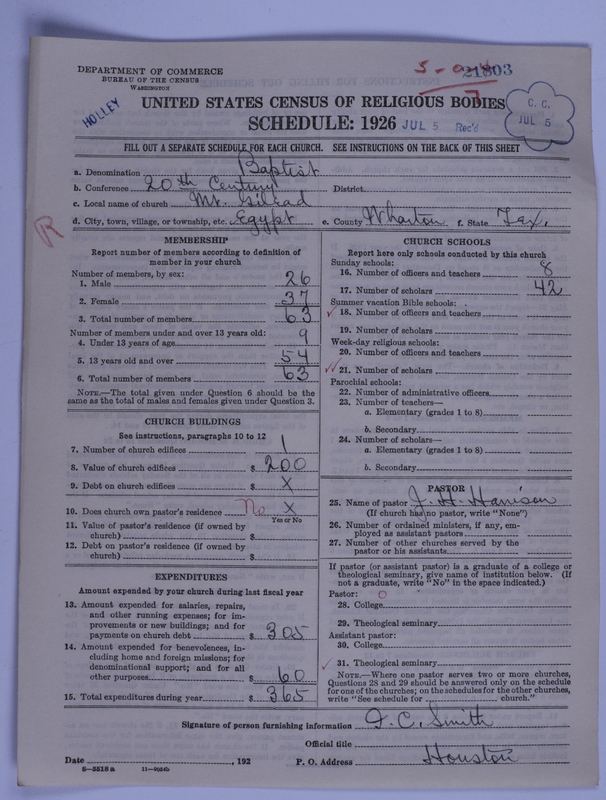 DEPARTMENT OF COMMERCE
BUREAU OF THE CENSUS
WASHINGTON
HOLLEY
21803
UNITED STATES CENSUS OF RELIGIOUS BODIES
SCHEDULE: 1926
JUL 5 Rec'd
C. C.
JUL 5
FILL OUT A SEPARATE SCHEDULE FOR EACH CHURCH. SEE INSTRUCTIONS ON THE BACK OF THIS SHEET
a. Denomination Baptist
b. Conference 20th Century District
c. Local name of church Mt. Gilead
d. City, town, village, or township, etc. Egypt e. County Wharton f. State Tex.
R
MEMBERSHIP
Report number of members according to definition of
member in your church
Number of members, by sex:
1. Male 26
2. Female 37
3. Total number of members 63
Number of members under and over 13 years old:
4. Under 13 years of age 9
5. 13 years old and over 54
6. Total number of members 63
NOTE.—The total given under Question 6 should be the
same as the total of males and females given under Question 3.
CHURCH BUILDINGS
See instructions, paragraphs 10 to 12
7. Number of church edifices 1
8. Value of church edifices $ 200
9. Debt on church edifices $ X
10. Does church own pastor's residence No X
Yes or No
11. Value of pastor's residence (if owned by
church) $
12. Debt on pastor's residence (if owned by
church) $
EXPENDITURES
Amount expended by your church during last fiscal year
13. Amount expended for salaries, repairs,
and other running expenses; for im-
provements or new buildings; and for
payments on church debt $ 305
14. Amount expended for benevolences, in-
cluding home and foreign missions; for
denominational support; and for all
other purposes $ 60
15. Total expenditures during year $ 365
CHURCH SCHOOLS
Report here only schools conducted by this church
Sunday schools:
16. Number of officers and teachers 8
17. Number of scholars 42
Summer vacation Bible schools:
18. Number of officers and teachers
19. Number of scholars
Week-day religious schools:
20. Number of officers and teachers
21. Number of scholars
Parochial schools:
22. Number of administrative officers
23. Number of teachers—
a. Elementary (grades 1 to 8)
b. Secondary
24. Number of scholars—
a. Elementary (grades 1 to 8)
b. Secondary
PASTOR
25. Name of pastor J. H. Harrison
(If church has no pastor, write "None")
26. Number of ordained ministers, if any, em-
ployed as assistant pastors
27. Number of other churches served by the
pastor or his assistants
If pastor (or assistant pastor) is a graduate of a college or
theological seminary, give name of institution below. (If
not a graduate, write "No" in the space indicated.)
Pastor: O
28. College
29. Theological seminary
Assistant pastor:
30. College
31. Theological seminary
NOTE.—Where one pastor serves two or more churches,
Questions 28 and 29 should be answered only on the schedule
for one of the churches; on the schedules for the other churches,
write "See schedule for church."
Signature of person furnishing information J. C. Smith
Official title
Date , 192 P. O. Address Houston
8—5518 a 11—9054b